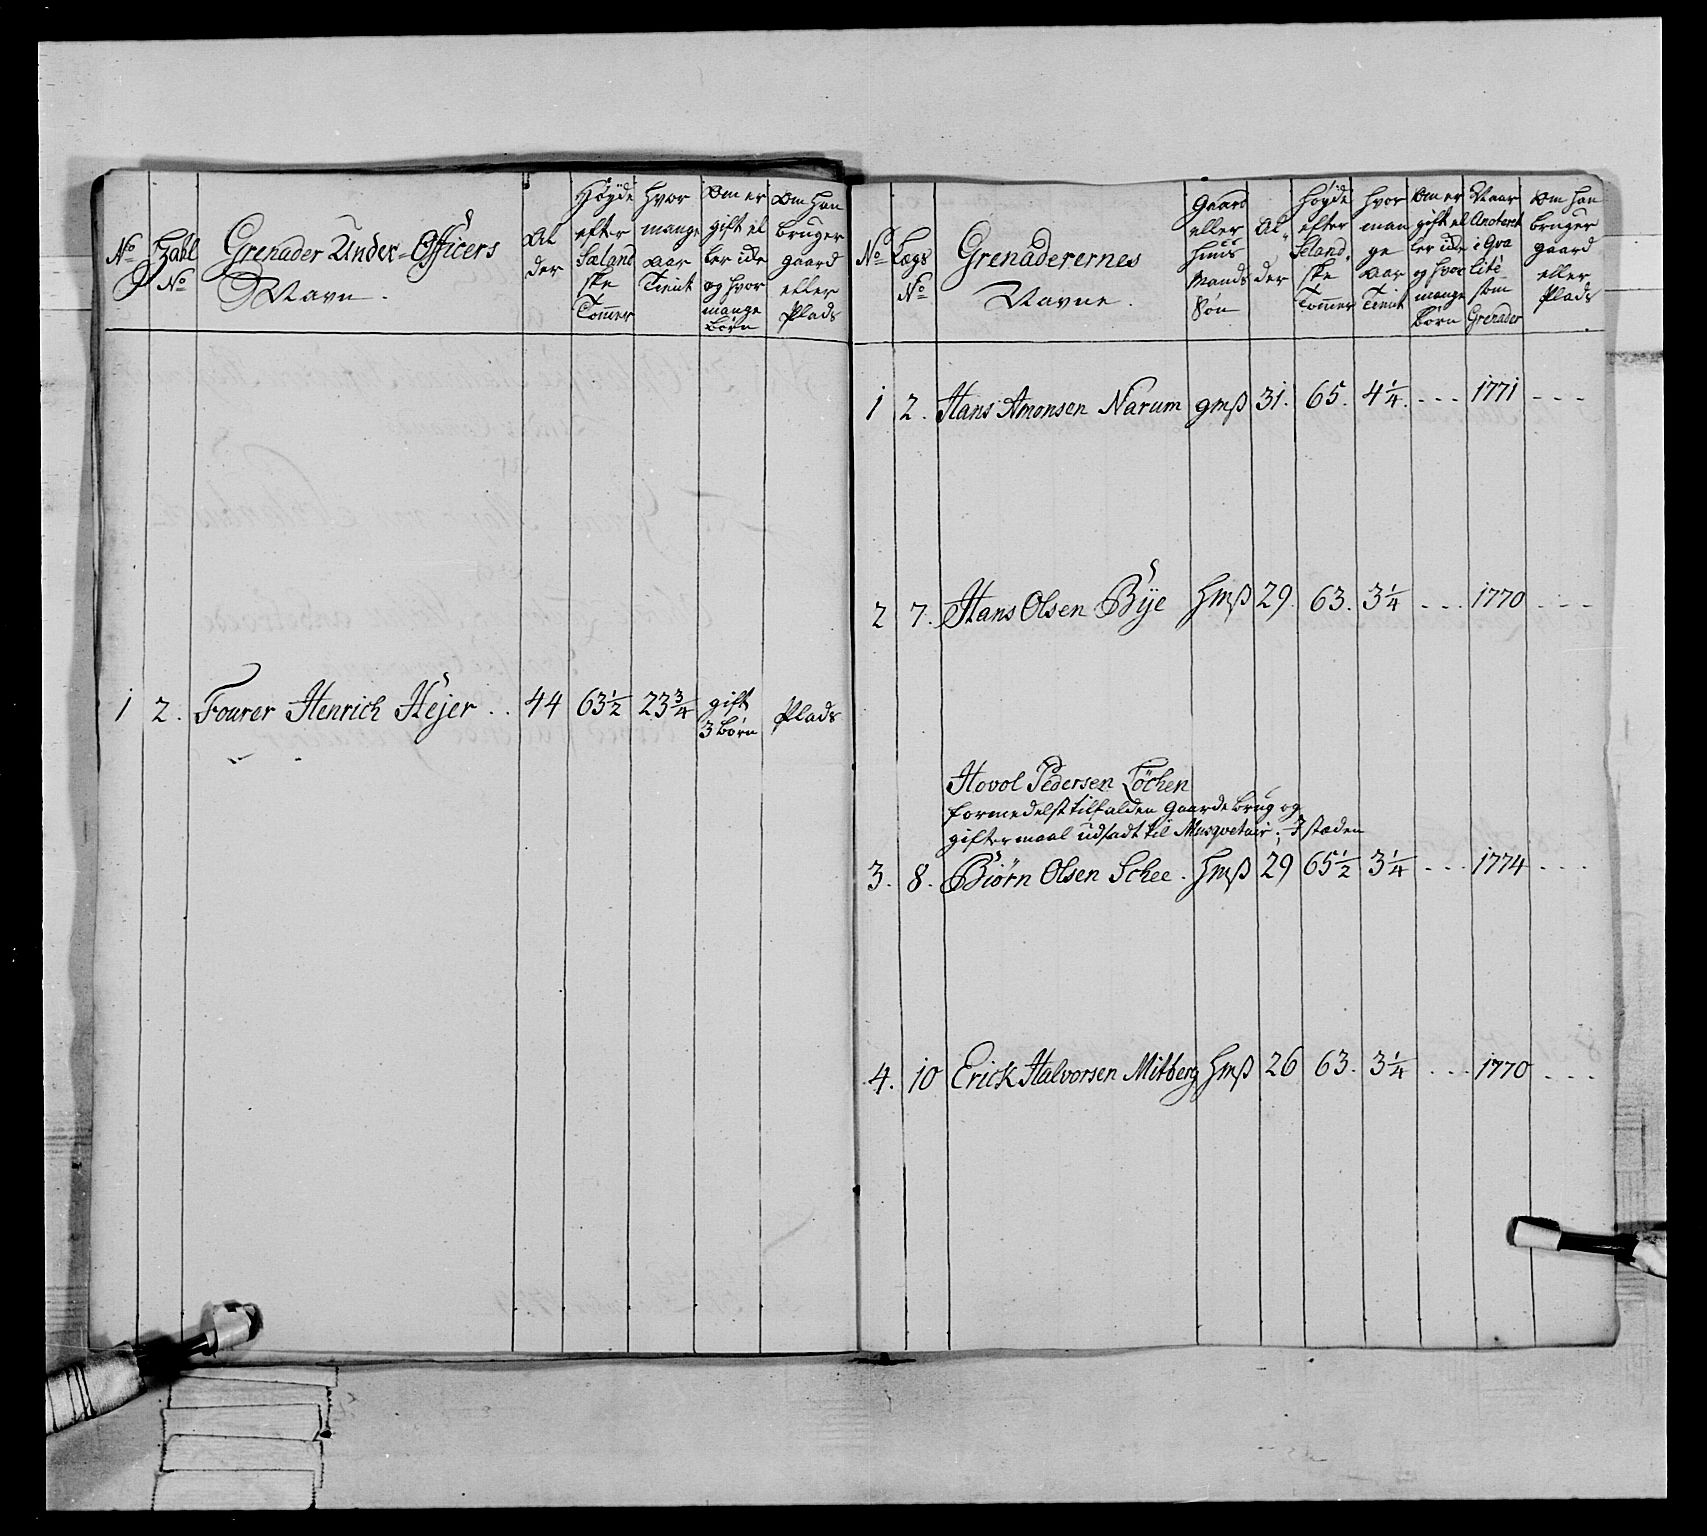 No
Zahl No
Grenader Under-Officers Navn.
Al der
Høyde efter Sælandske Tomer
hvor mange Aar Tient
Om er gift el ler ide og hvor mange Børn
Om han bruger gaard eller Plads
1 2. Fourer Henrich Hejer . . 44 63½ 23¾ gift 3 børn Plads
No
Lægs No
Grenaderernes Navne.
Gaard eller Huus Mands Søn
Al der
høyde efter Seland ske Tomer
hvor man ge Aar Tient
Om er gift el ler ide og hvor mange Børn
Naar Anoteret i Qva lité som Grenader
Om han bruger gaard eller Plads
1 2. Hans Amonsen Narum gmß 31. 65. 4¼. - - - 1771 - - -
2 7. Hans Olsen Bÿe Hmß 29. 63. 3¼ - - - 1770 - - -
Hovol Pedersen Løchen
formedelst tilfalden Gaarde brug og
giftermaal udsadt til Musqvetair; I stæden
3. 8. Biørn Olsen Schee. Hmß 29 65½ 3¼ - - - 1774 - - -
4. 10 Erick Halvorsen Mitberg Hmß 26 63. 3¼ - - - 1770 - - -